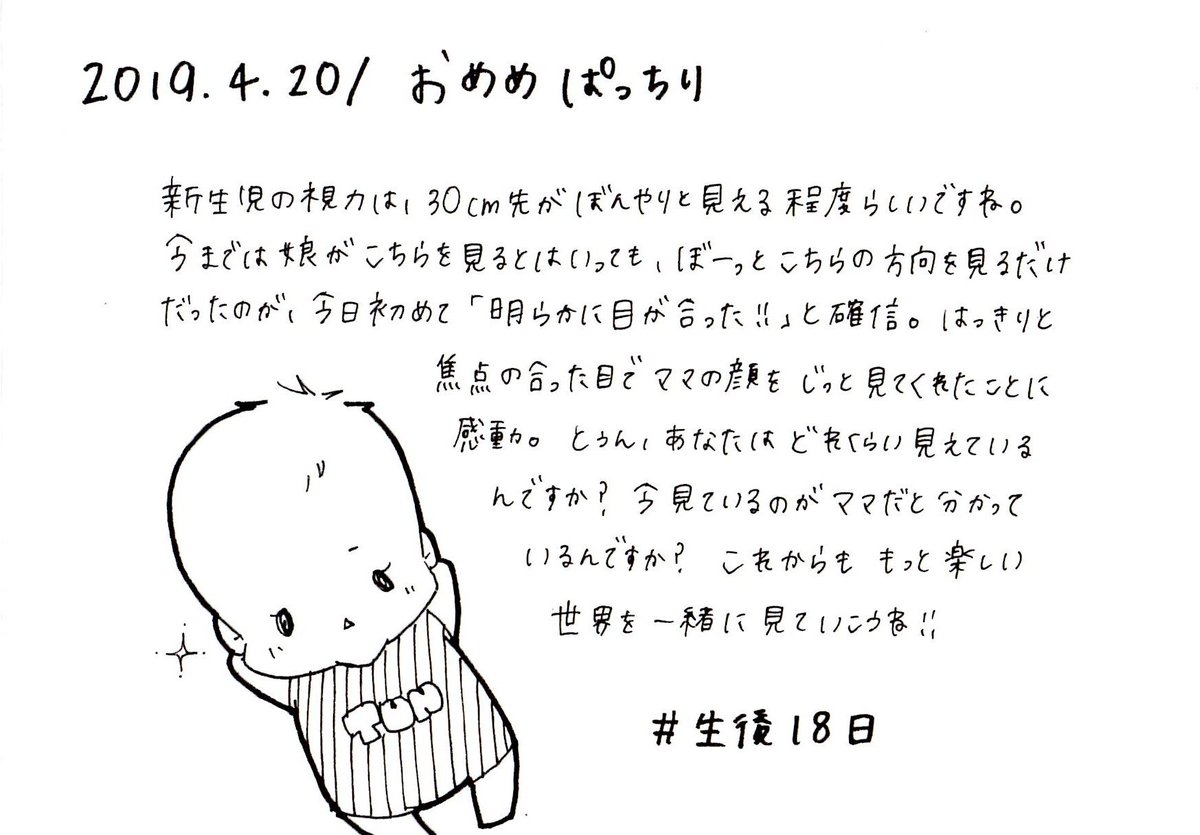 2019.4.20/ おめめぱっちり
新生児の視力は、30cm先がぼんやりと見える程度らしいですね。
今までは娘がこちらを見るとはいっても、ぼーっとこちらの方向を見るだけ
だったのが、今日初めて「明らかに目が合った!!」と確信。はっきりと
焦点の合った目でママの顔をじっと見てくれたことに
感動。とぅん、あなたはどれくらい見えている
んですか？今見ているのがママだと分かって
いるんですか？これからももっと楽しい
世界を一緒に見ていこうね!!
TUN
#生後18日